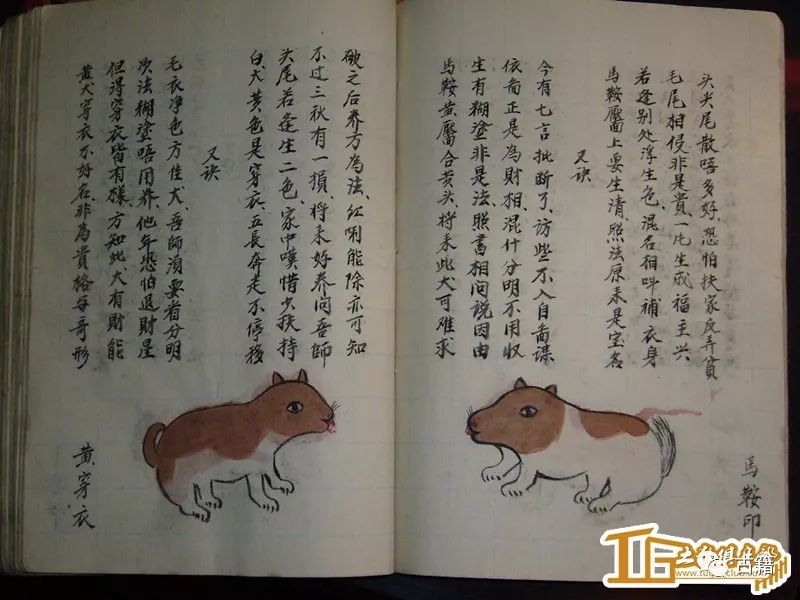 馬鞍印
头尖尾散唔多好、恐怕扶家反弄貧
毛尾相侵非是貴、一片生成福主兴
若逢别处浮生色、混名相叫補衣身
馬鞍壓面上要生清、照法原来是宝名
又诀
今有七言批断了、访些不入自面谋
依常正是為財相、混什分明不用收
生有糊塗非是法、照書相问説因由
馬鞍黄壓合黄头、将来此犬可难求
破之后养方為法、红唎能除亦可知
不过三秋有一損、将来好养问吾師
头尾若逢生二色、家中嘆惜少扶持
白犬黄色是穿衣、五長奔走不停移
又诀
毛衣净色方佳犬、吾師須要看分明
次法糊塗唔用养、他年恐怕退財星
但得穿衣皆有樣、方知此犬有財能
黄犬穿衣不好名、非為貴格每哥形
黄穿衣
古籍